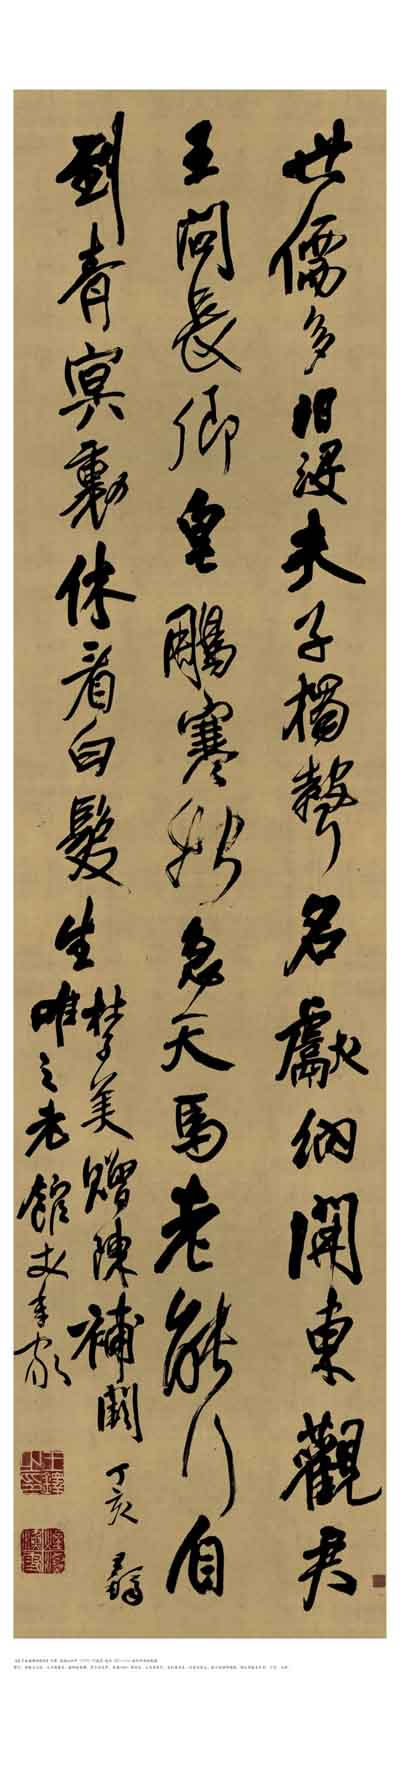 世儒多汩没夫子獨聲名獻納開東觀君
王問長卿皂鵰寒始急天馬老能行自
到青冥裏休看白髮生
杜子美贈陳補闕 丁亥
唯之老館丈年家
王鐸之印